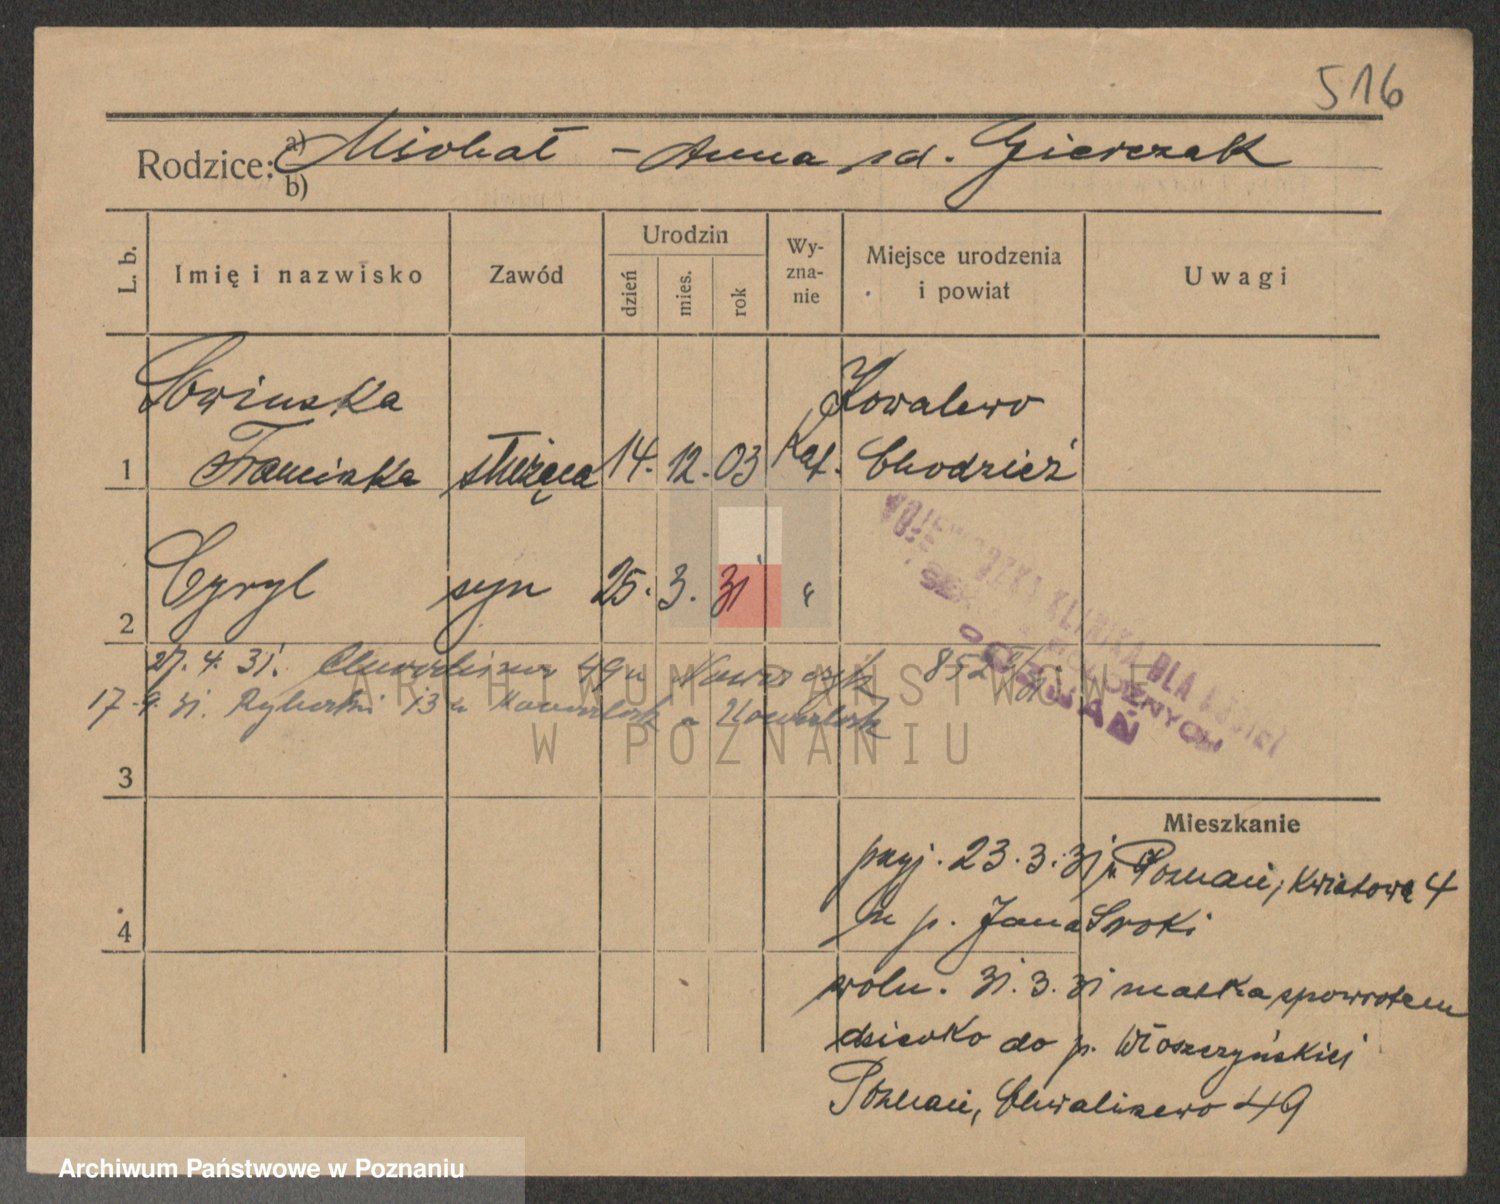 516
Rodzice: a) Michał – Anna zd. Gierczak
b)
L. b.
Imię i nazwisko
Zawód
Urodzin
dzień
mies.
rok
Wy-
zna-
nie
Miejsce urodzenia
i powiat
Uwagi
Sowinska Kowalewo
1 Franciszka służąca 14. 12. 03 Kat. Chodzież
2 Cyryl syn 25. 3. 31 "
WOJEWÓDZKA KLINIKA DLA KOBIET
POZNAŃ
27. 4. 31. Chwaliszewo 49 u Nawroczyk
17. 9. 31. Rybaki 13 u
3
Mieszkanie
przyj. 23.3.31 z Poznań, Kwiatowa 4
u p. Jana Sroki
4
woln. 31.3.31 matka spowrotem
dziecko do p. Włoszczyńskiej
Poznań, Chwaliszewo 49
ARCHIWUM PAŃSTWOWE
W POZNANIU
Archiwum Państwowe w Poznaniu